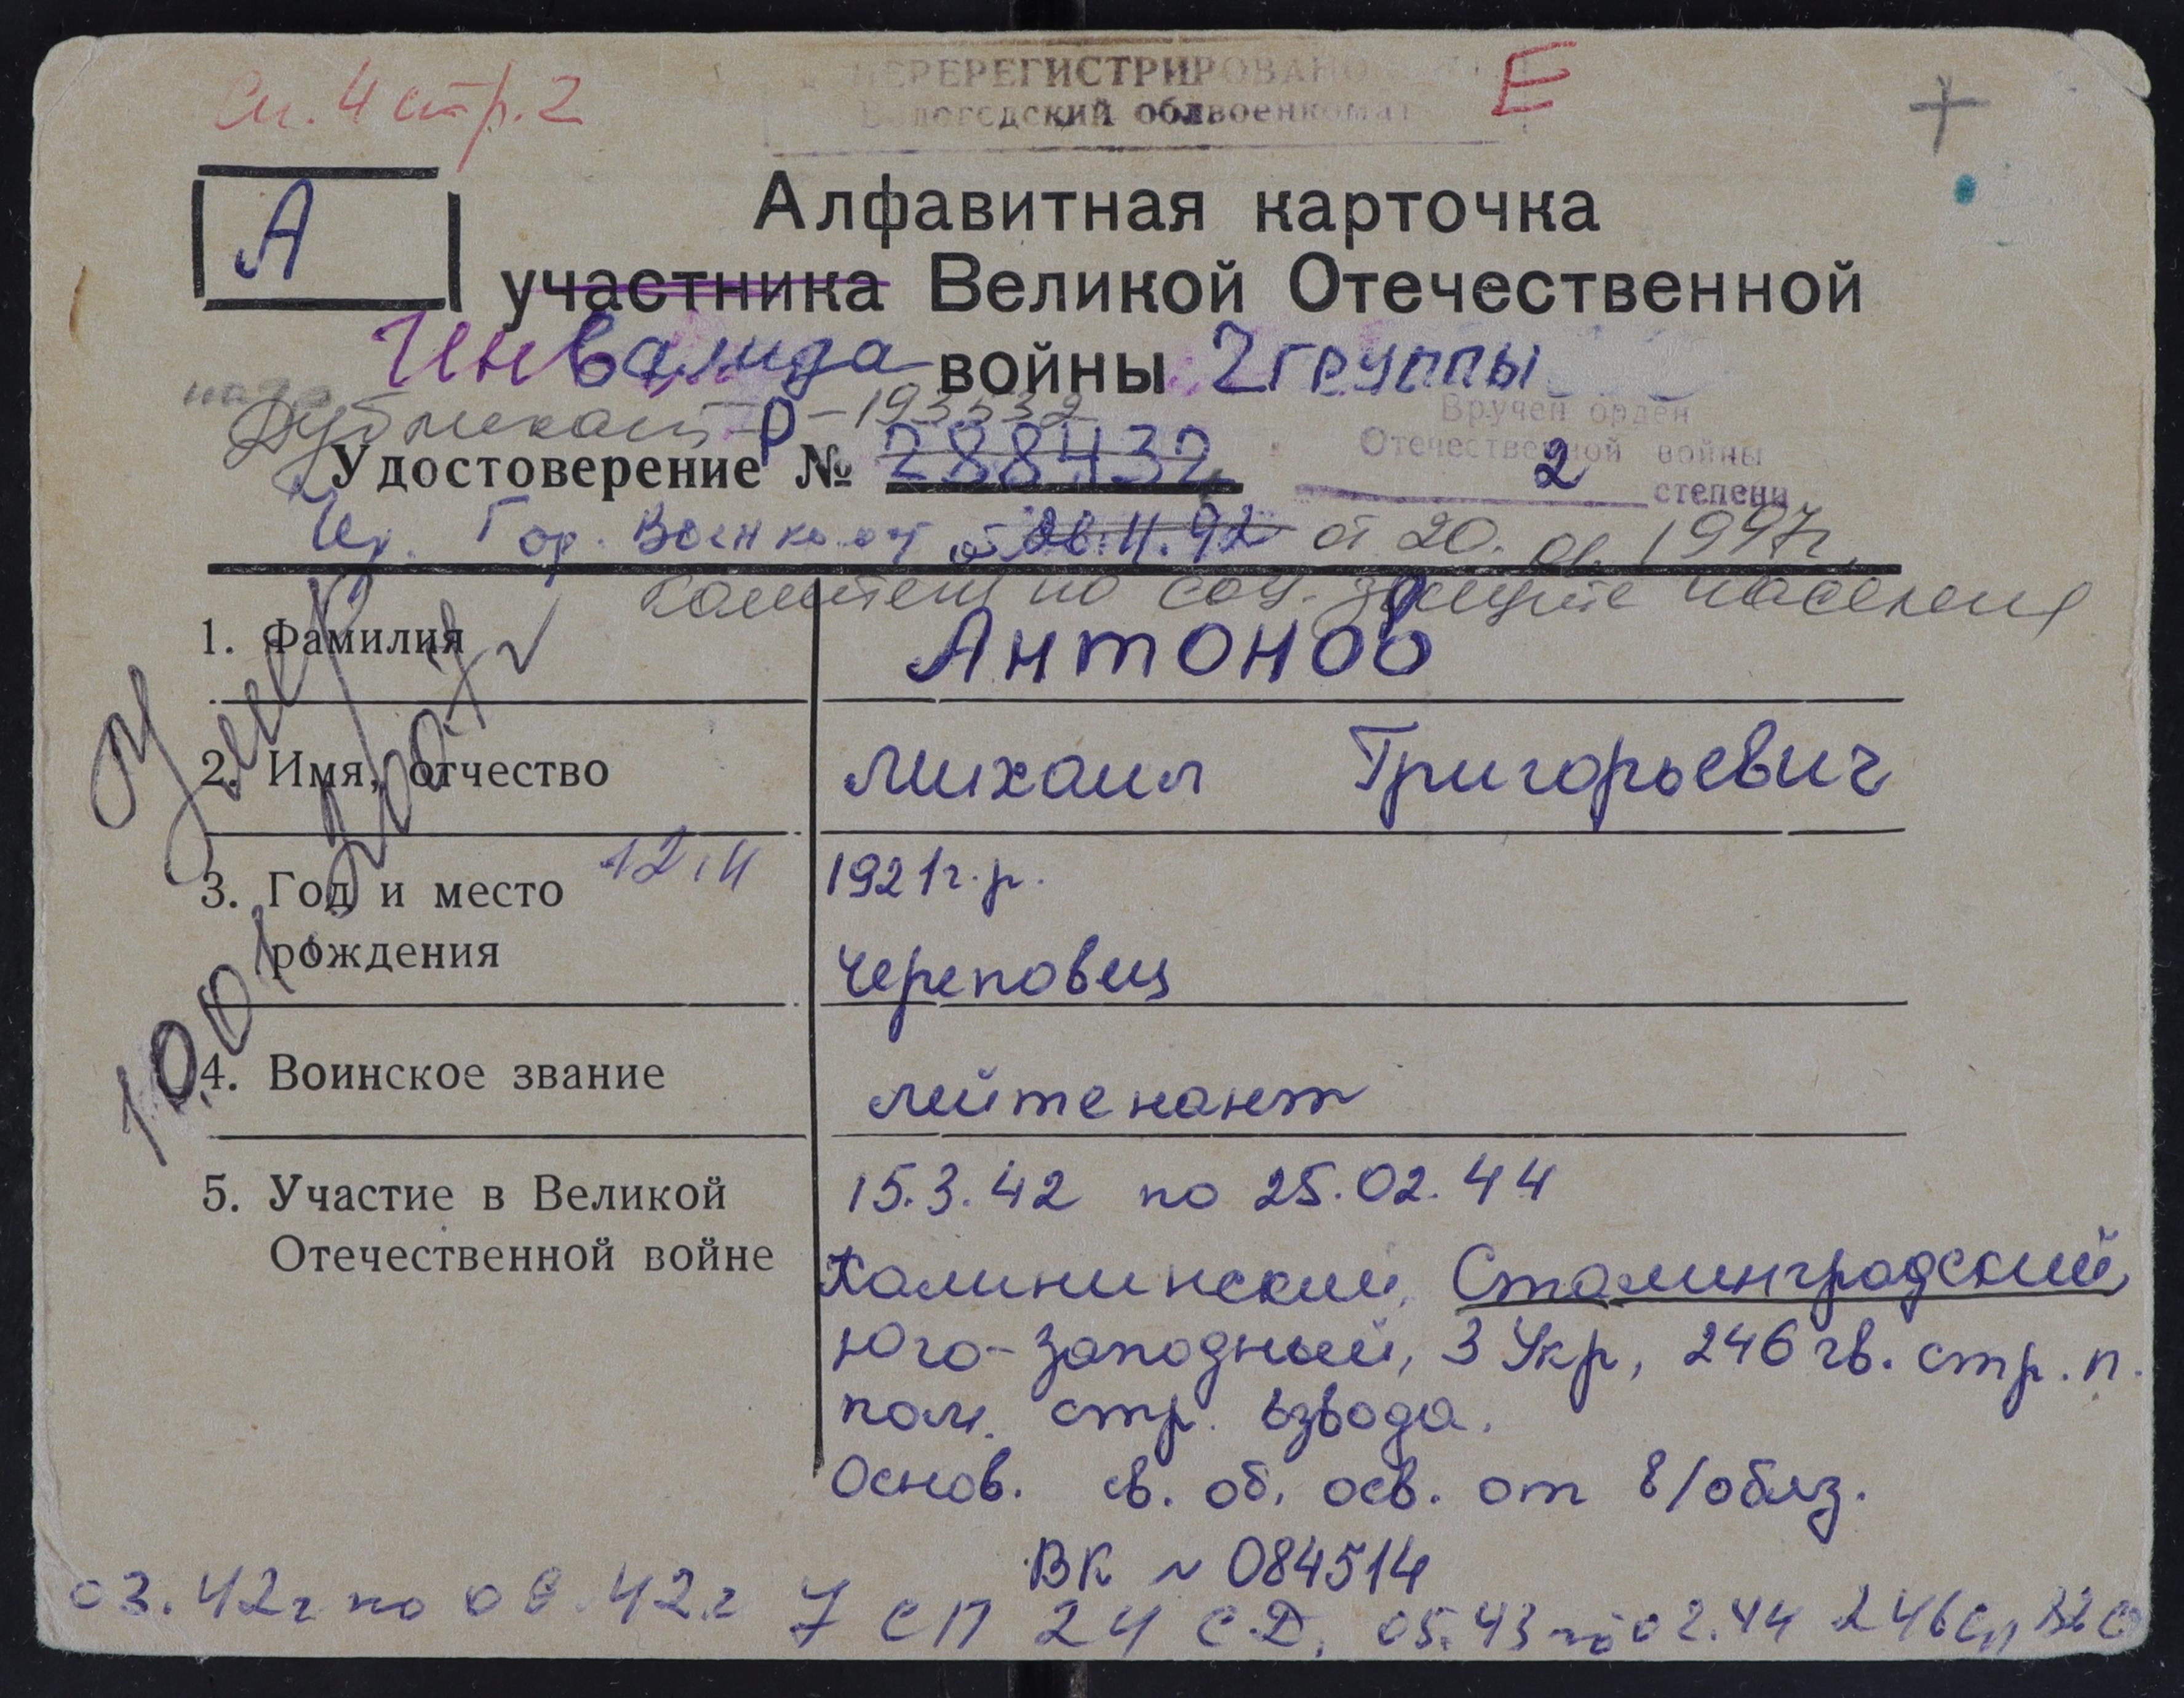 См. 4 стр. 2
ПЕРЕРЕГИСТРИРОВАНО
Е
Вологодский облвоенкомат
А
Алфавитная карточка
участника Великой Отечественной
Инвалида войны 2 группы
Дубликат Р-193532
Удостоверение № 288432
Вручен орден
Отечественной войны
2 степени
Чер. Гор. Военкомат от 26.11.92 от 20. 01. 1997г.
Комитет по соц. защите населения
1. Фамилия Антонов
2. Имя, отчество Михаил Григорьевич
3. Год и место рождения 12.11 1921 г.р.
Череповец
4. Воинское звание лейтенант
5. Участие в Великой Отечественной войне 15.3.42 по 25.02.44
Калининский, Сталинградский,
Юго-западный, 3 Укр, 246 гв. стр. п.
пом. стр. взвода.
Основ. св. об. осв. от в/обяз.
ВК № 084514
03.42г по 08.42г 7 СП 24 С.Д. 05.43 по 02.44 246 сп
Умер
10.01.2007г